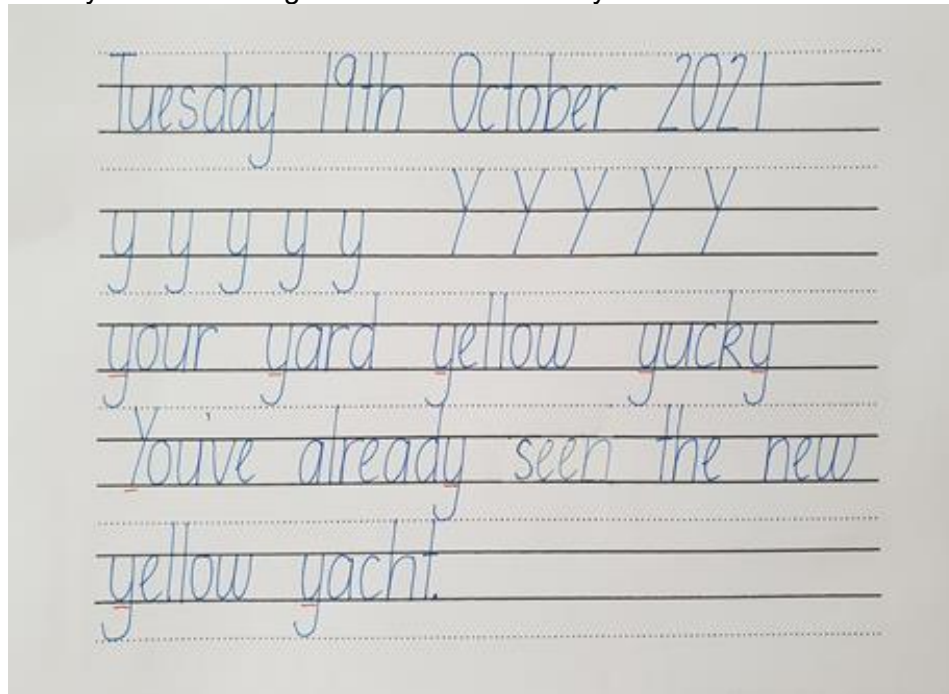 Tuesday 19th October 2021
y y y y y Y Y Y Y Y
your yard yellow yucky
You've already seen the new
yellow yacht.